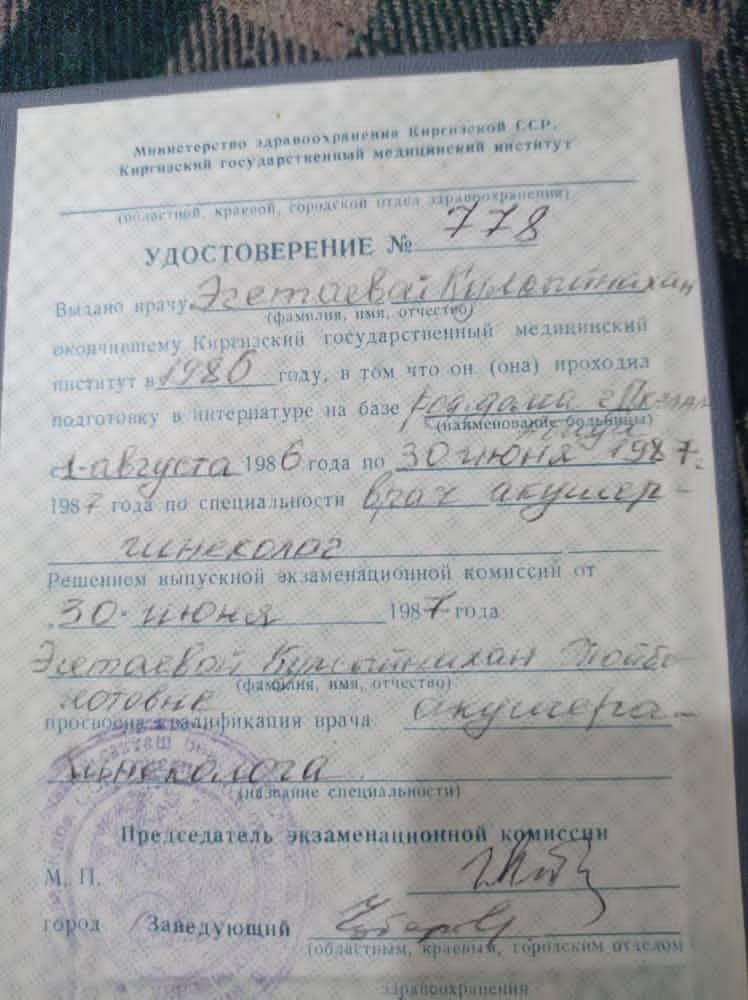 Министерство здравоохранения Киргизской ССР.
Киргизский государственный медицинский институт
(областной, краевой, городской отдел здравоохранения)
УДОСТОВЕРЕНИЕ № 778
Выдано врачу Эгетаевой
(фамилия, имя, отчество)
окончившему Киргизский государственный медицинский
институт в 1986 году, в том что он (она) проходил
подготовку в интернатуре на базе роддома г.
(наименование больницы)
с 1-августа 1986 года по 30 июня 1987 г.
1987 года по специальности врач акушер-
гинеколог
Решением выпускной экзаменационной комиссий от
„30. июня 1987 года
Эгетаевой
(фамилия, имя, отчество)
просвоена квалификация врача акушера-
гинеколога
(название специальности)
Председатель экзаменационной комиссии
М. П.
город Заведующий
(областным, краевым, городским отделом
здравоохранения